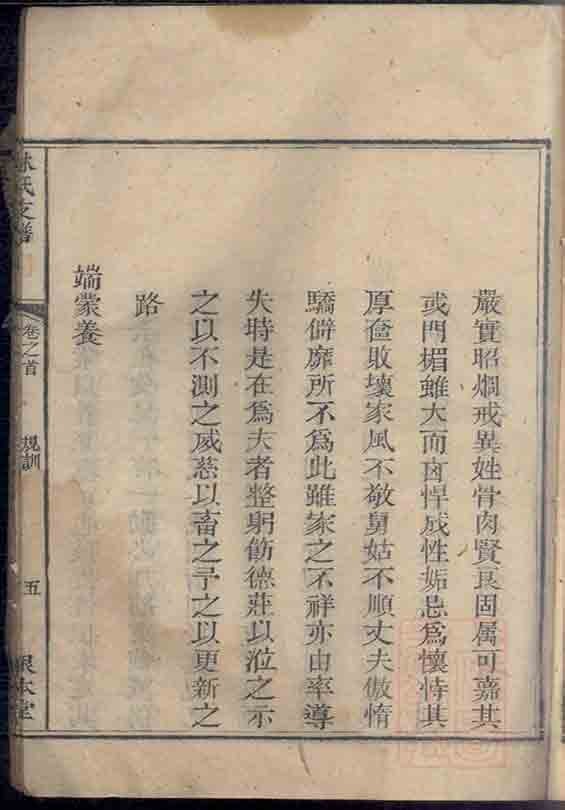 嚴實昭烱戒異姓骨肉賢良固属可嘉其
或門楣雖大而囪悍成性妬忌爲懷恃其
厚奩敗壞家風不敬舅姑不順丈夫傲惰
驕僻靡所不爲此雖家之不祥亦由率導
失時是在爲夫者整躬勸德莊以涖之示
之以不測之威慈以畜之予之以更新之
路
端蒙養
林氏支譜
卷之首
規訓
五
本堂